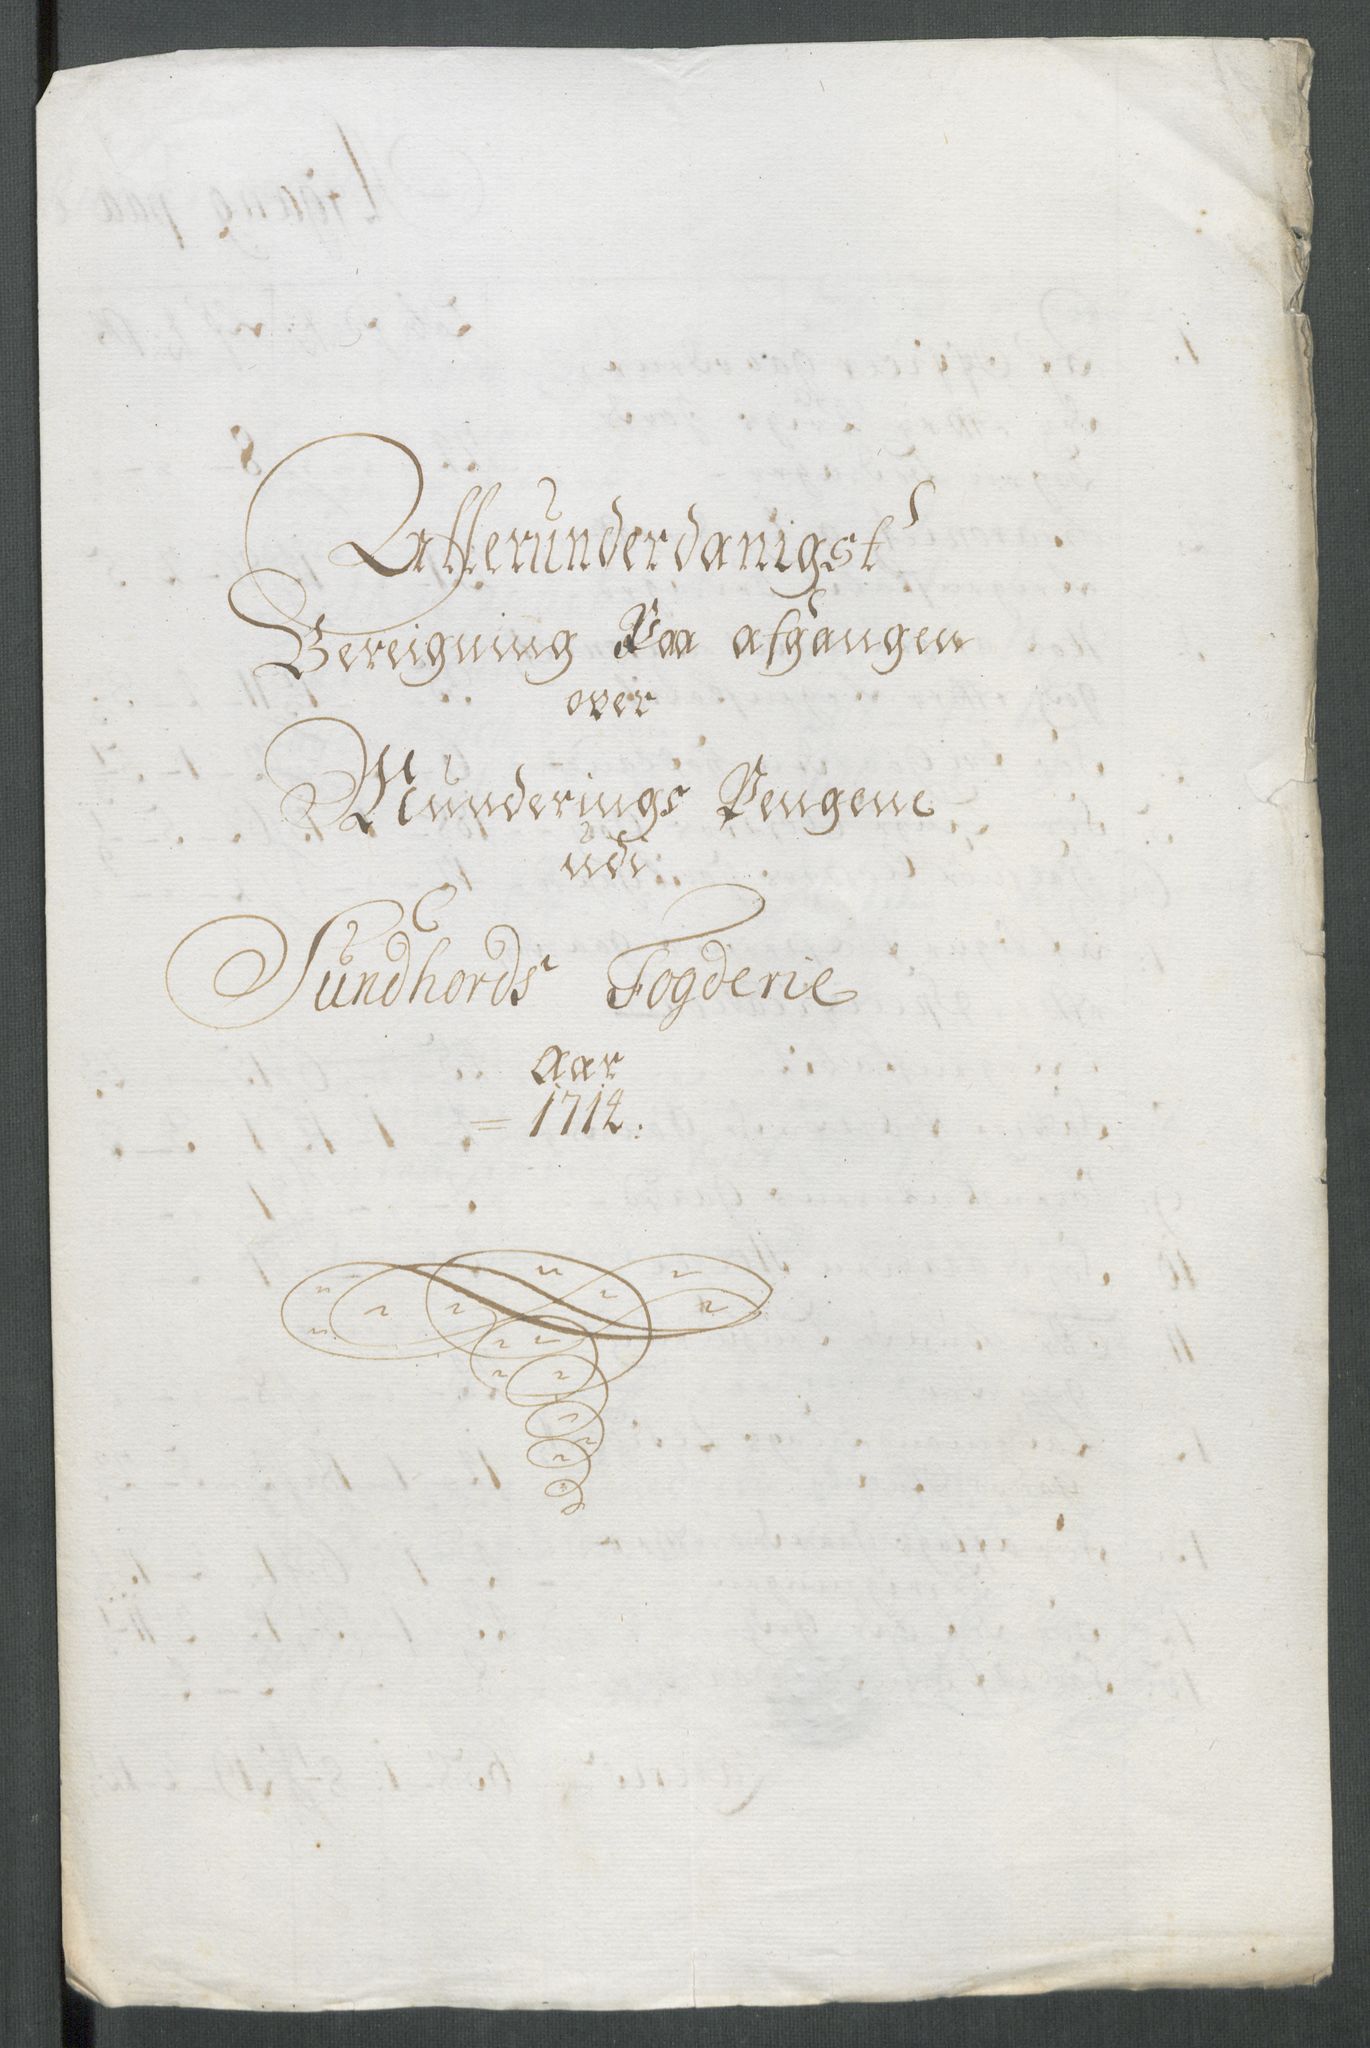 Allerunderdanigst
Bereigning Paa afgangen
over
Munderings Pengene
udi
Sundhords Fogderie
Aar
1714.